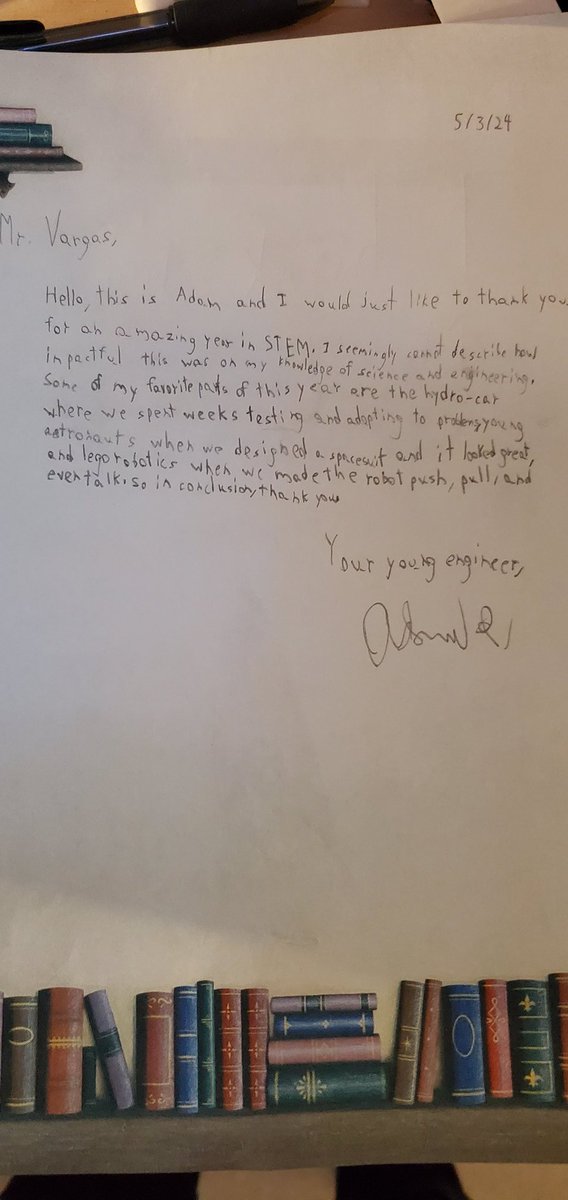 5/3/24
Mr. Vargas,
Hello, this is Adam and I would just like to thank you
for an amazing year in STEM. I seemingly cannot describe how
impactful this was on my knowledge of science and engineering.
Some of my favorite parts of this year are the hydro-car
where we spent weeks testing and adapting to problems, young
astronauts when we designed a spacesuit and it looked great,
and lego robotics when we made the robot push, pull, and
even talk. So in conclusion, thank you.
Your young engineer,